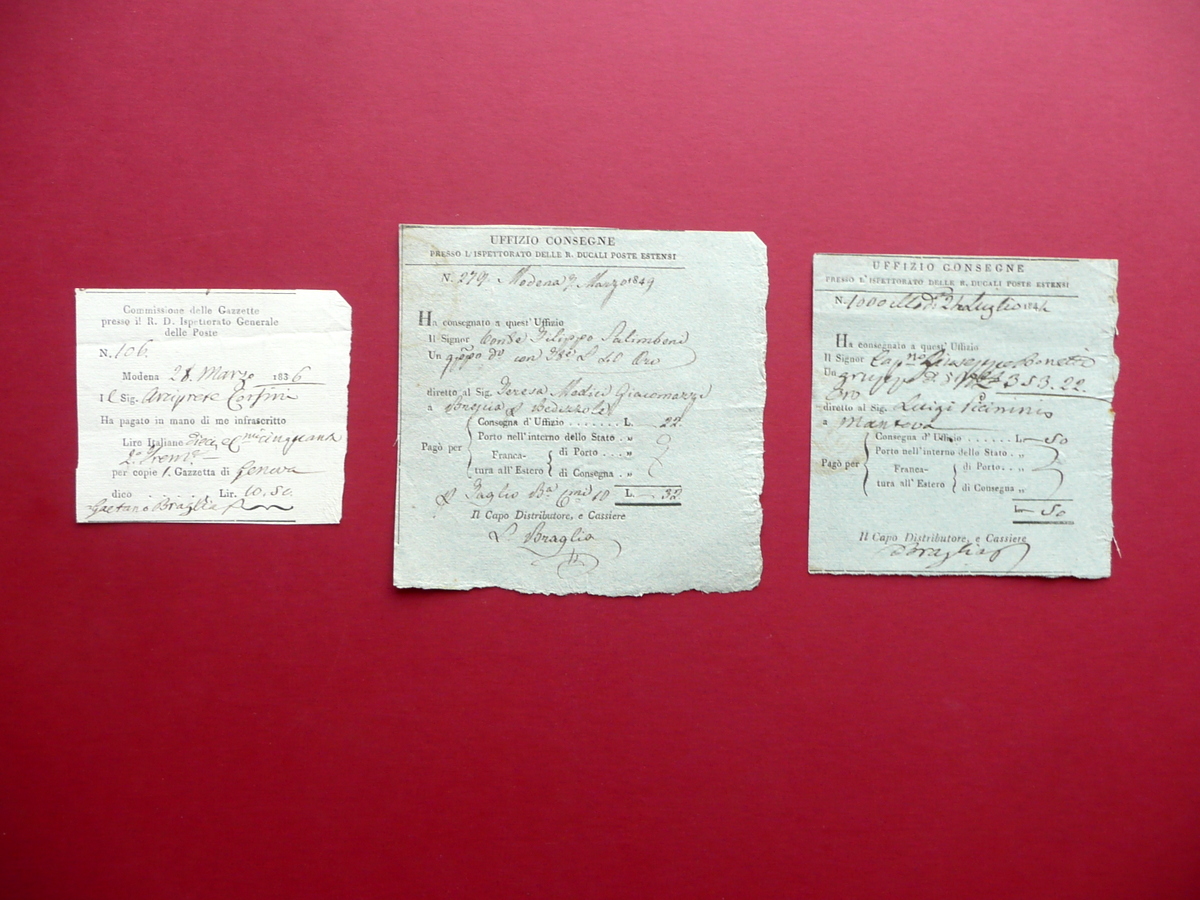 Commissione delle Gazzette
presso il R. D. Ispettorato Generale
delle Poste
N. 106.
Modena 28. Marzo 1836
Il Sig. Arciprete Corsini
Ha pagato in mano di me infrascritto
Lire Italiane dieci, e Cmi cinquanta
per copie 1. Gazzetta di Genova
dico Lir. 10.50.
Gaetano Braglia
UFFIZIO CONSEGNE
PRESSO L'ISPETTORATO DELLE R. DUCALI POSTE ESTENSI
N. 279. Modena 7 Marzo 1849
Ha consegnato a quest' Uffizio
Il Signor Conte Filippo Salimbeni
Un con Oro
diretto al Sig. Teresa Medici Giacomazzi
a Bedizzole
Pagò per
Consegna d'Uffizio ....... L. 22
Porto nell'interno dello Stato . "
Franca-
tura all' Estero
di Porto ... "
di Consegna . "
10 L. 32
Il Capo Distributore, e Cassiere
Braglia
UFFIZIO CONSEGNE
PRESSO L'ISPETTORATO DELLE R. DUCALI POSTE ESTENSI
N. 1000 Luglio
Ha consegnato a quest' Uffizio
Il Signor Giuseppe
Un gruppo 353.22
Oro
diretto al Sig. Luigi Picinini
a Mantova
Pagò per
Consegna d'Uffizio ...... L. 50
Porto nell'interno dello Stato . "
Franca-
tura all' Estero
di Porto .. "
di Consegna "
L. 50
Il Capo Distributore, e Cassiere
Braglia